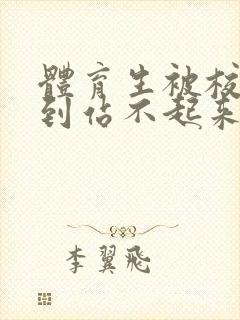 體育生被核
到估不起来
李翼飛